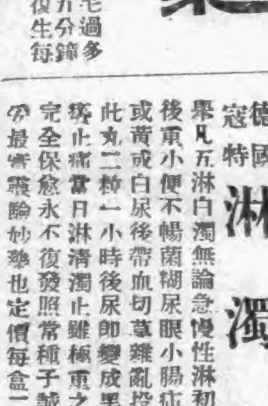 毛過多
分鐘
復生每
德國
寇特
淋濁
舉凡五淋白濁無論急慢性淋初
後重小便不暢菌糊尿眼小腸疝
或黃或白尿後帶血切莫雜亂投
此丸二粒一小時後尿即變成黑
止痛當日淋清濁止雖極重之
完全保愈永不復發照常種子誠
最靈驗妙藥也定價每盒